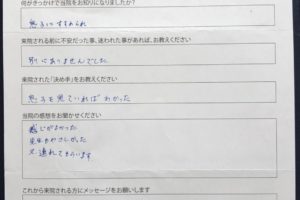 何がきっかけで当院をお知りになりましたか?
息子にすすめられ
来院される前に不安だった事、迷われた事があれば、お教えください
別にありませんでした
来院された「決め手」をお教えください
息子を見ていればわかった
当院の感想をお聞かせください
感じがよかった
先生もやさしかった
又連れてもらいます
これから来院される方にメッセージをお願いします